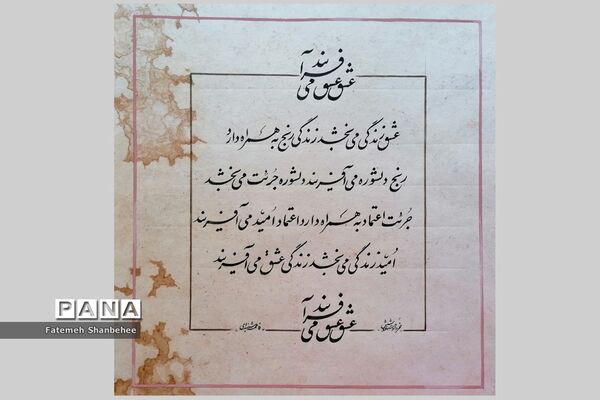 عشق عشق می آفریند
عشق زندگی می بخشد زندگی رنج به همراه دارد
رنج دلشوره می آفریند دلشوره جرئت می بخشد
جرئت اعتماد به همراه دارد اعتماد امید می آفریند
امید زندگی می بخشد زندگی عشق می آفریند
عشق عشق می آفریند
PANA
Fatemeh Shanbehee